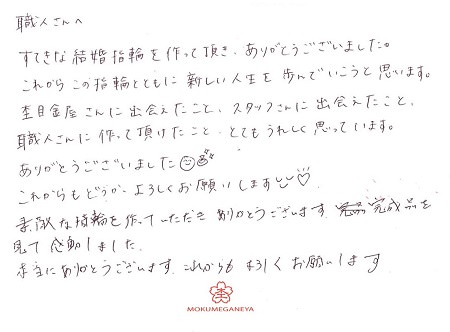 職人さんへ
すてきな結婚指輪を作って頂き、ありがとうございました。
これからこの指輪とともに新しい人生を歩んでいこうと思います。
杢目金屋さんに出会えたこと、スタッフさんに出会えたこと、
職人さんに作って頂けたこと、とてもうれしく思っています。
ありがとうございました
これからもどうかよろしくお願いします
素敵な指輪を作っていただきありがとうございます 完成品を
見て感動しました。
本当にありがとうございます これからも よろしくお願いします
杢
MOKUMEGANEYA